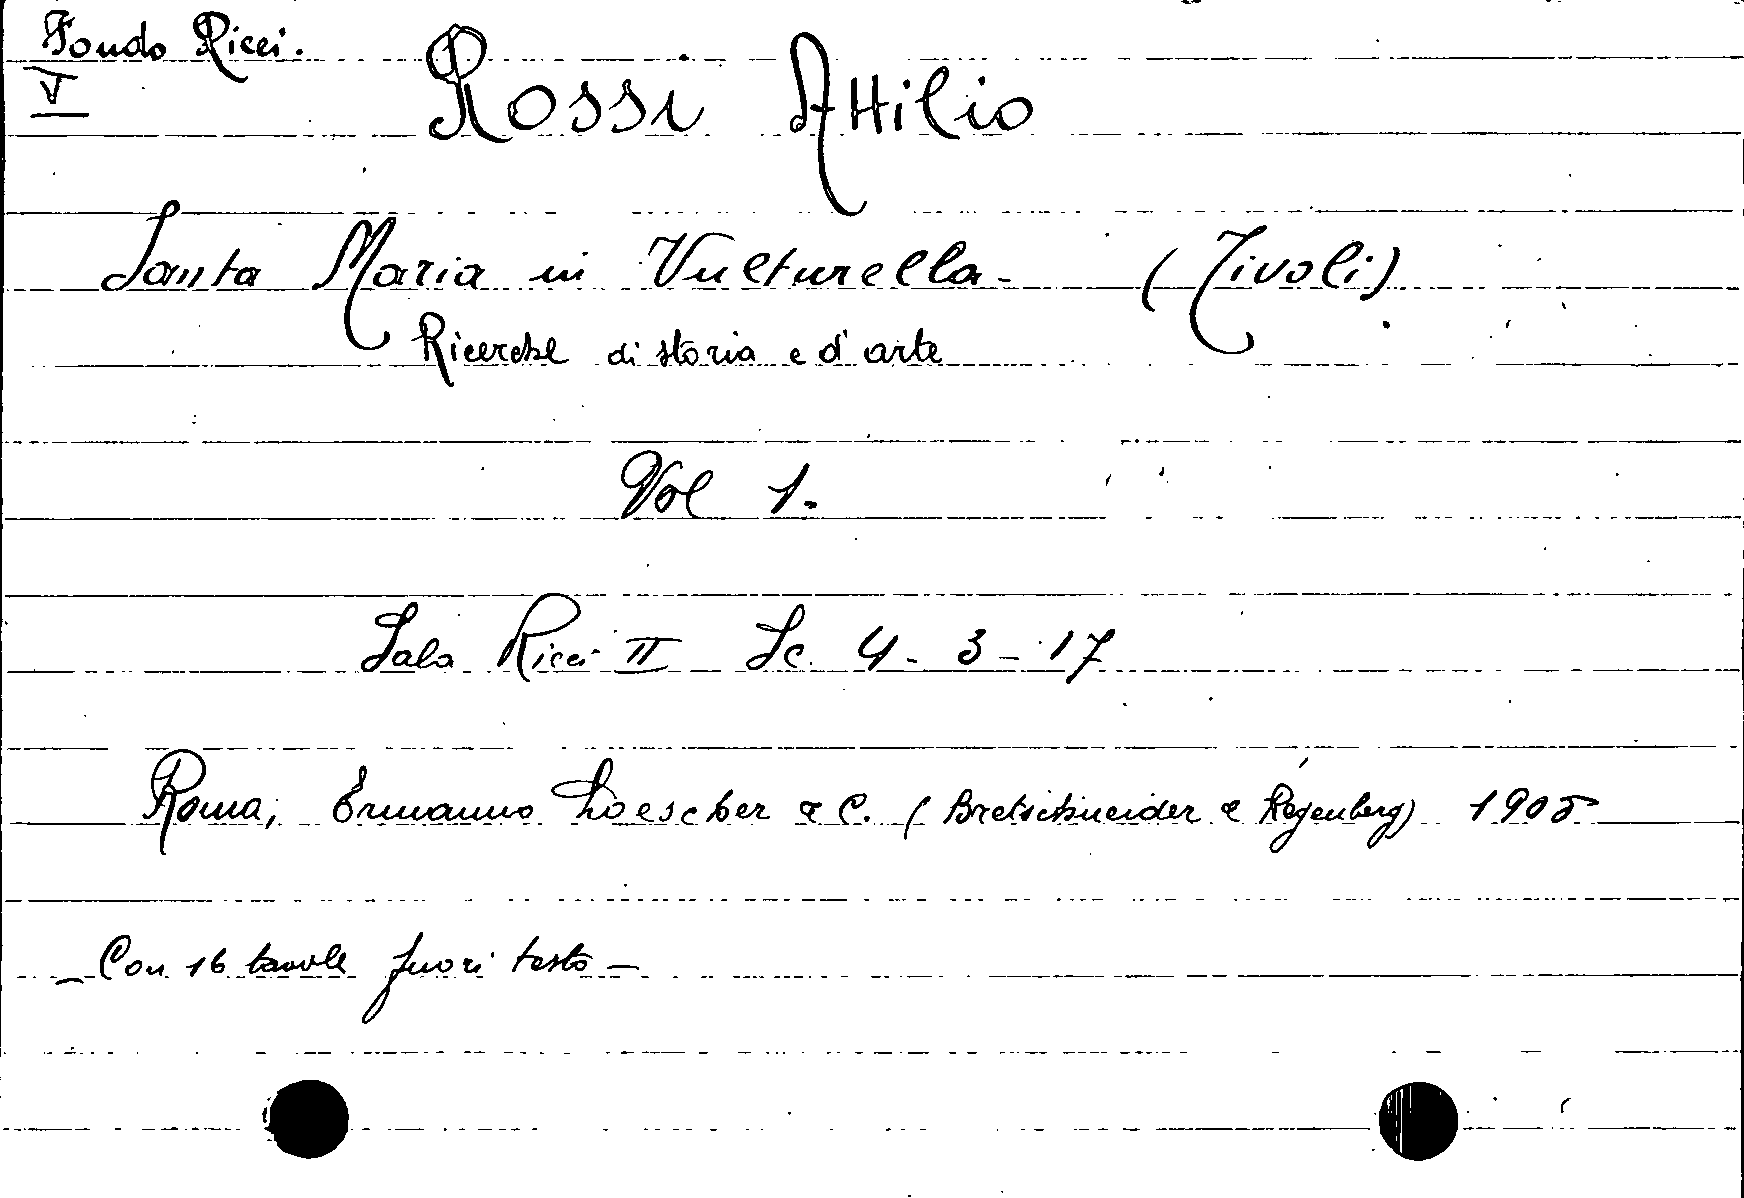 Fondo Ricci.
V
Rossi Attilio
Santa Maria in Vulturella - (Tivoli)
Ricerche di storia e d'arte
Vol 1.
Sala Ricci II Sc. 4 - 3 - 17
Roma, Ermanno Loescher & C. (Bretschneider e Regenberg) 1905
- Con 16 tavole fuori testo -